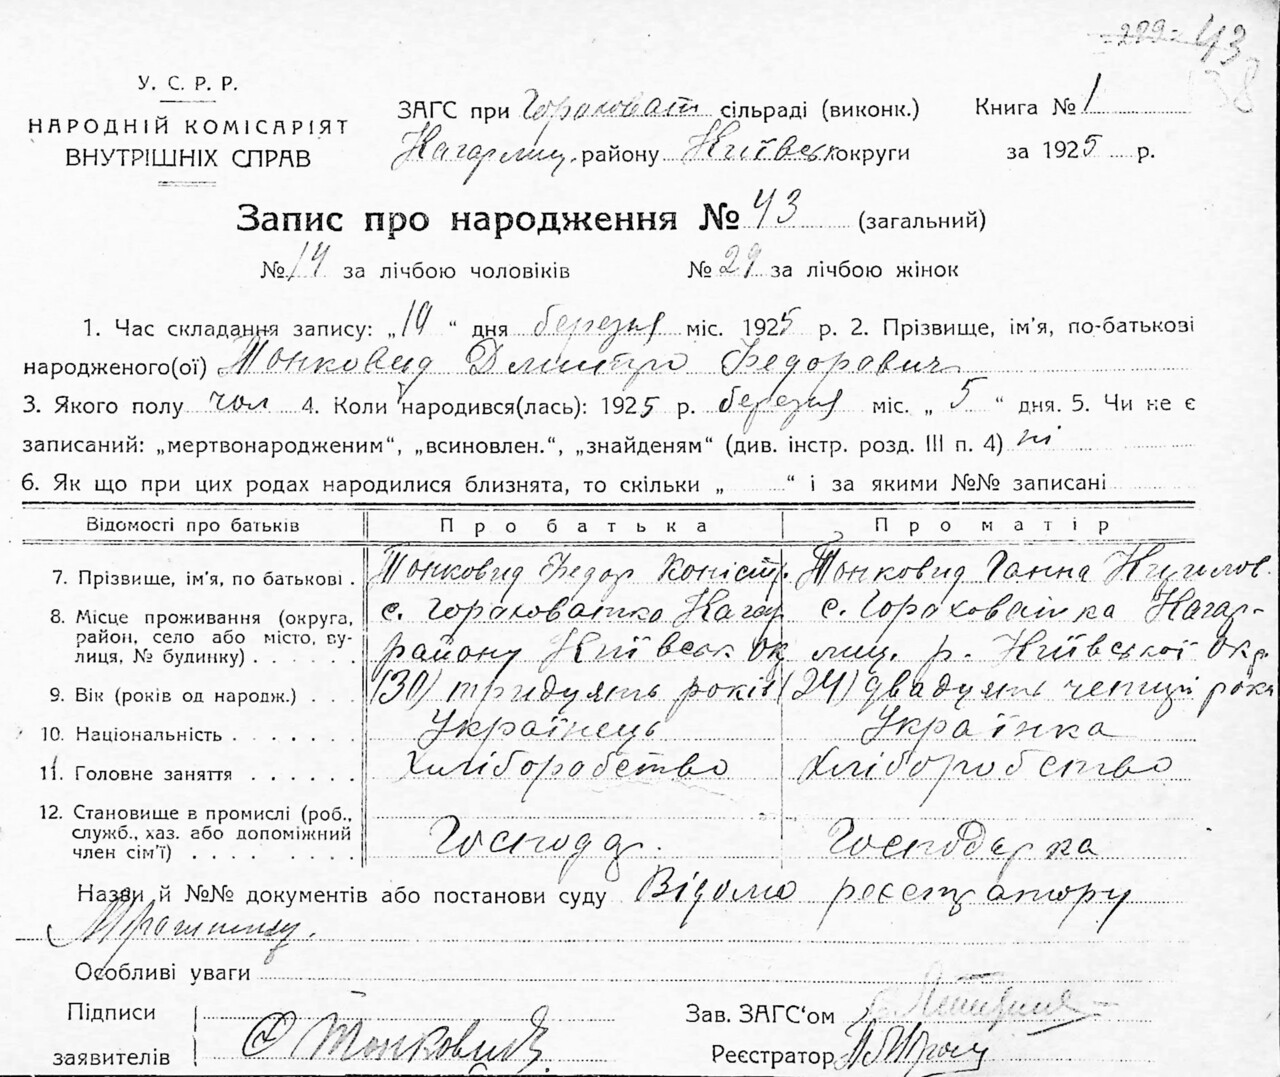 -229- 43
38
У. С. Р. Р.
НАРОДНІЙ КОМІСАРІЯТ
ВНУТРІШНІХ СПРАВ
ЗАГС при Гороховат сільраді (виконк.)
Кагарлиц. району Київськ округи
Книга № 1
за 1925 р.
Запис про народження № 43 (загальний)
№ 14 за лічбою чоловіків № 29 за лічбою жінок
1. Час складання запису: „19“ дня березня міс. 1925 р. 2. Прізвище, ім'я, по-батькові
народженого(ої) Тонковид Дмитро Федорович
3. Якого полу чол 4. Коли народився(лась): 1925 р. березня міс. „5“ дня. 5. Чи не є
записаний: „мертвонародженим“, „всиновлен.“, „знайденям“ (див. інстр. розд. III п. 4) ні
6. Як що при цих родах народилися близнята, то скільки „ “ і за якими №№ записані
Відомості про батьків Про батька Про матір
7. Прізвище, ім'я, по батькові . Тонковид Федор Коністр. Тонковид Ганна Кирилов.
8. Місце проживання (округа, район, село або місто, вулиця, № будинку) с. Гороховатка Кагар району Київськ ок с. Гороховатка Кагарлиц. р. Київської Окр.
9. Вік (років од народж.) (30) тридцять років (24) двадцять чотирі рока
10. Національність Українець Українка
11. Головне заняття Хліборобство Хліборобство
12. Становище в промислі (роб., служб., хаз. або допоміжний член сім'ї) Господар. Господарка
Назви й №№ документів або постанови суду Відомо реєстратору
Особливі уваги
Підписи
заявителів Ф Тонковид
Зав. ЗАГС‘ом
Реєстратор